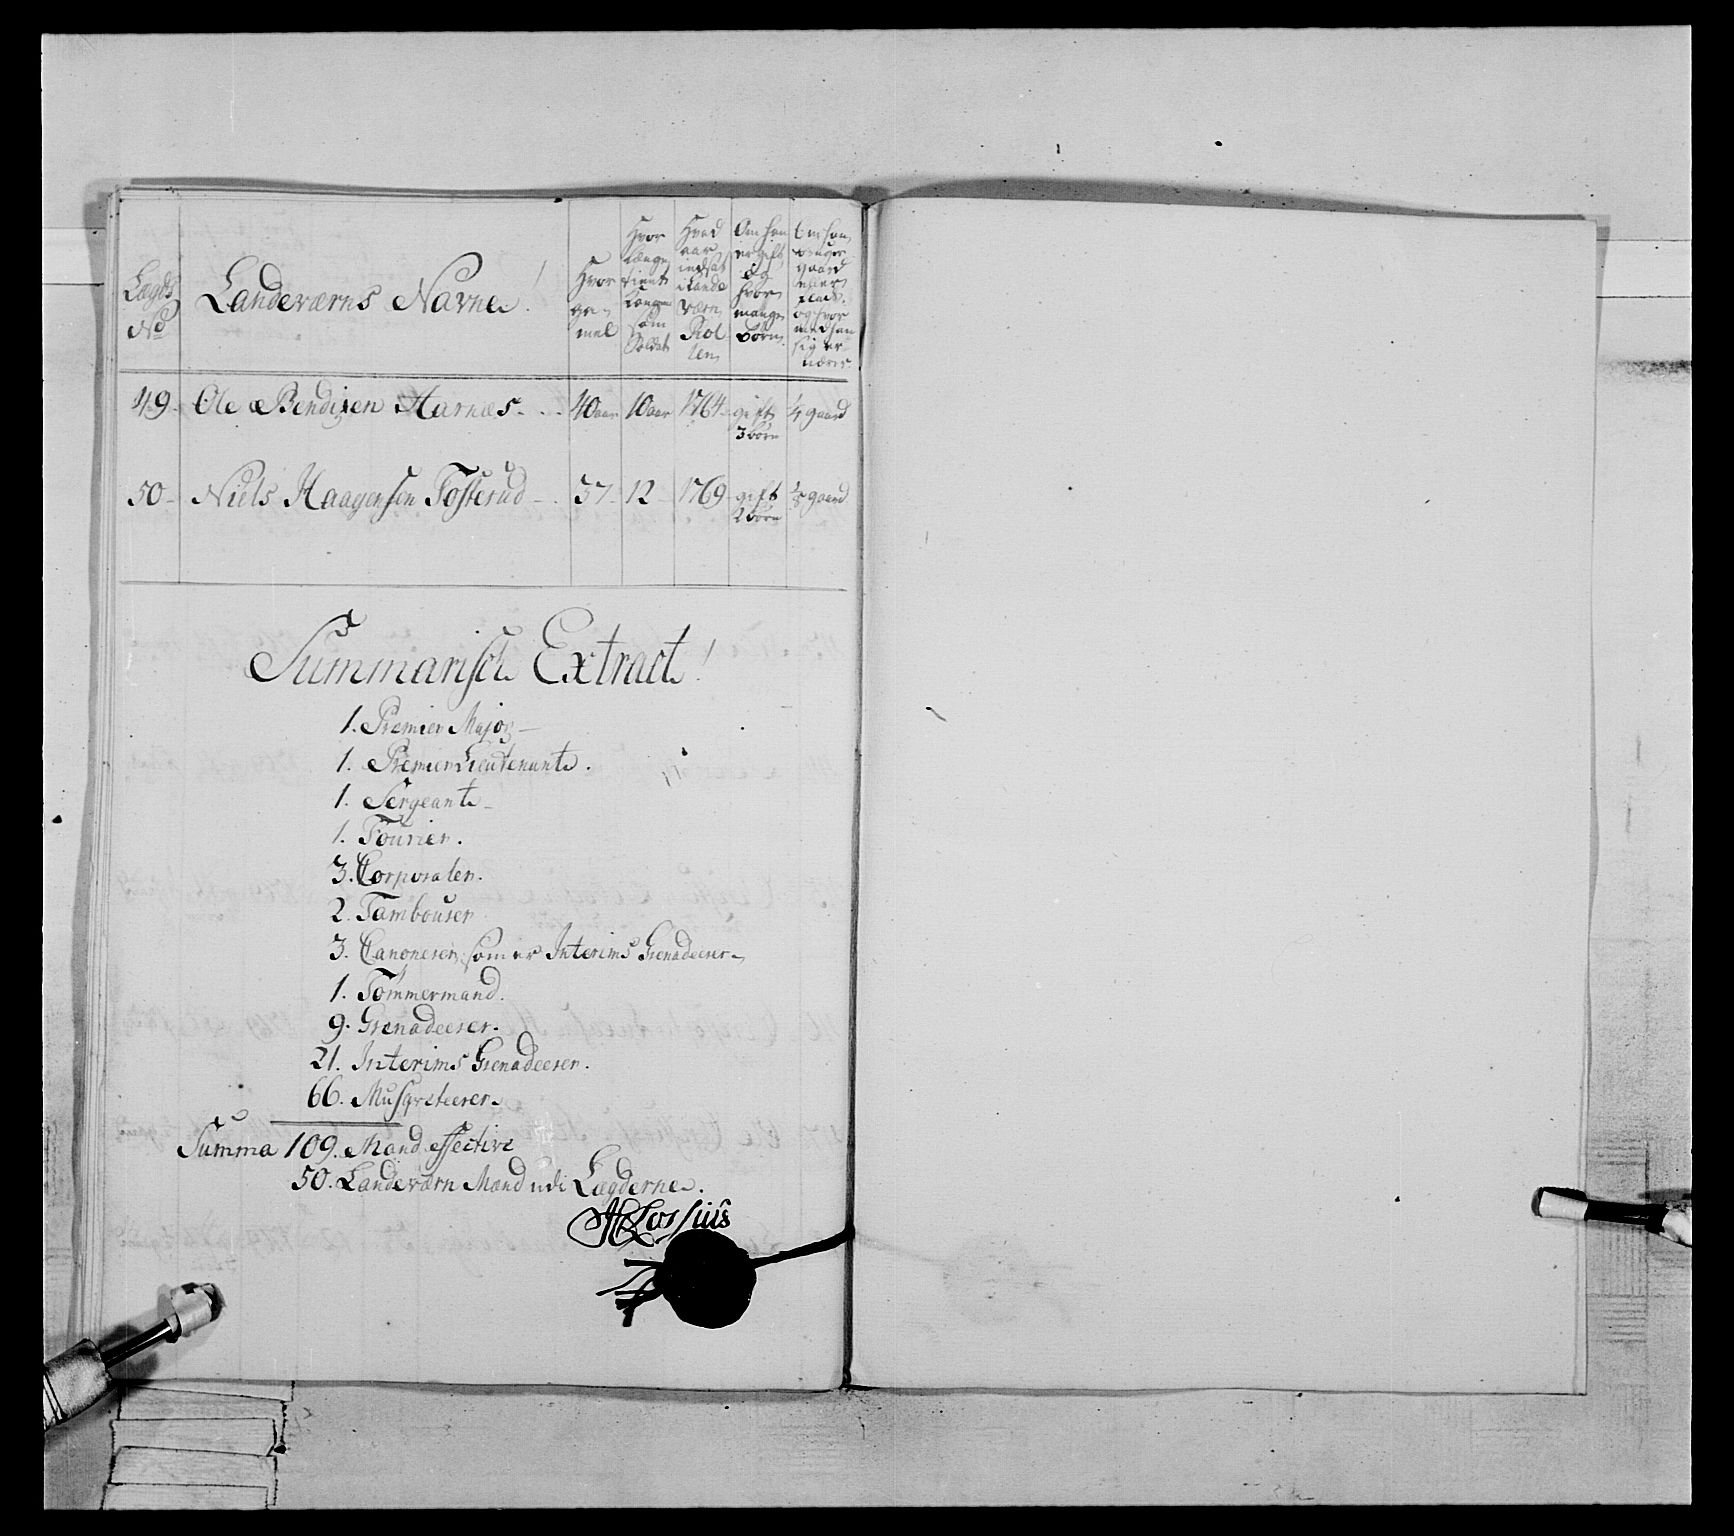 Lægds No
Landeværns Navne!
Hvor gamel
Hvor længe tient Kongen som Soldat
Hvad aar indsat i Lande Værn Rollen
Om han er gift, og hvor mange Børn
Om han bruger gaard eller Plads, og hvor med han sig ernærer
49 Ole Bendixen Harnæs 40 aar 10 aar 1764 gift 3 børn 1/4 gaard
50 Niels Haagensen Fosterud 37 12 1769 gift 2 børn 1/8 gaard
Summarisch Extract!
1. Premier Major
1. Premier Lieutenant.
1. Sergeant
1. Fourier.
3. Corporaler.
2. Tambouser
3. Canonerer, som er Interims Grenadeerer
1. Tømmermand.
9. Grenadeerer.
21. Interims Grenadeerer.
66. Musqveteerer.
Summa 109. Mand effective
50. Landeværn Mænd udi Lægderne.